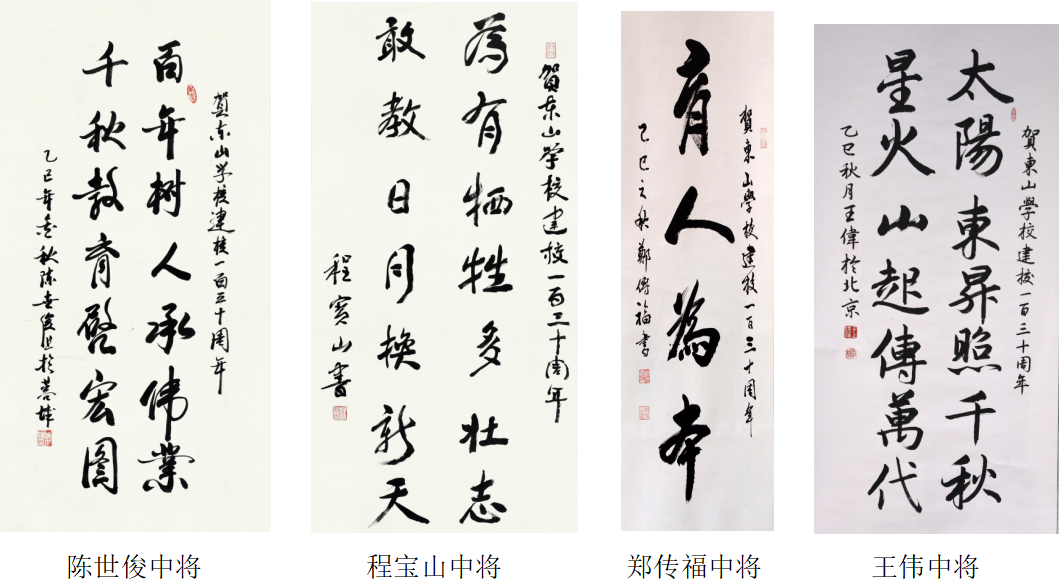 賀东山学校建校一百三十周年
百年树人承伟業
千秋教育啓宏图
乙巳年金秋陈世俊书於蓉城
贺东山学校建校一百三十周年
為有牺牲多壮志
敢教日月换新天
程寳山書
賀東山學校建校一百三十周年
育人為本
乙巳之秋鄭傳福書
賀東山學校建校一百三十周年
太陽東昇照千秋
星火山起傳萬代
乙巳秋月王偉於北京
陈世俊中将
程宝山中将
郑传福中将
王伟中将